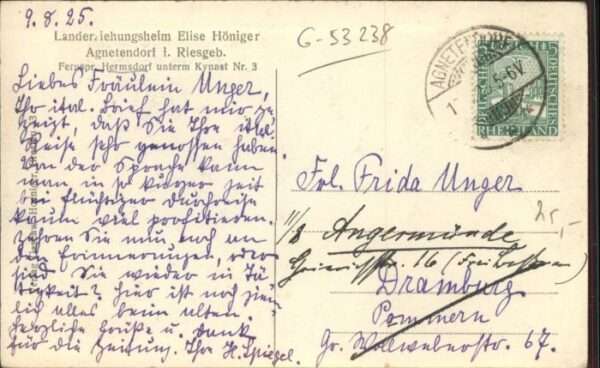 9.8.25.
Landerziehungsheim Elise Höniger
Agnetendorf i. Riesgeb.
Fernspr. Hermsdorf unterm Kynast Nr. 3
G-53238
Liebes Fräulein Unger,
Ihr ital. Brief hat mir ge-
zeigt, daß Sie Ihre ital.
Reise sehr genossen haben.
Von der Sprache kann
man in so kurzer Zeit
bei flüchtiger Durchreise
kaum viel profitieren.
Zehren Sie nun noch an
den Erinnerungen, oder
sind Sie wieder in Tä-
tigkeit? Hier ist noch ziem-
lich alles beim alten.
Herzliche Grüße u. Dank
für die Zeitung. Ihre H. Spiegel.
AGNETENDORF
5-6V
DEUTSCHES REICH
RHEINLAND
Frl. Frida Unger
25,-
11/8 Angermünde
16
Dramburg
Pommern
Gr. Wollweberstr. 67.